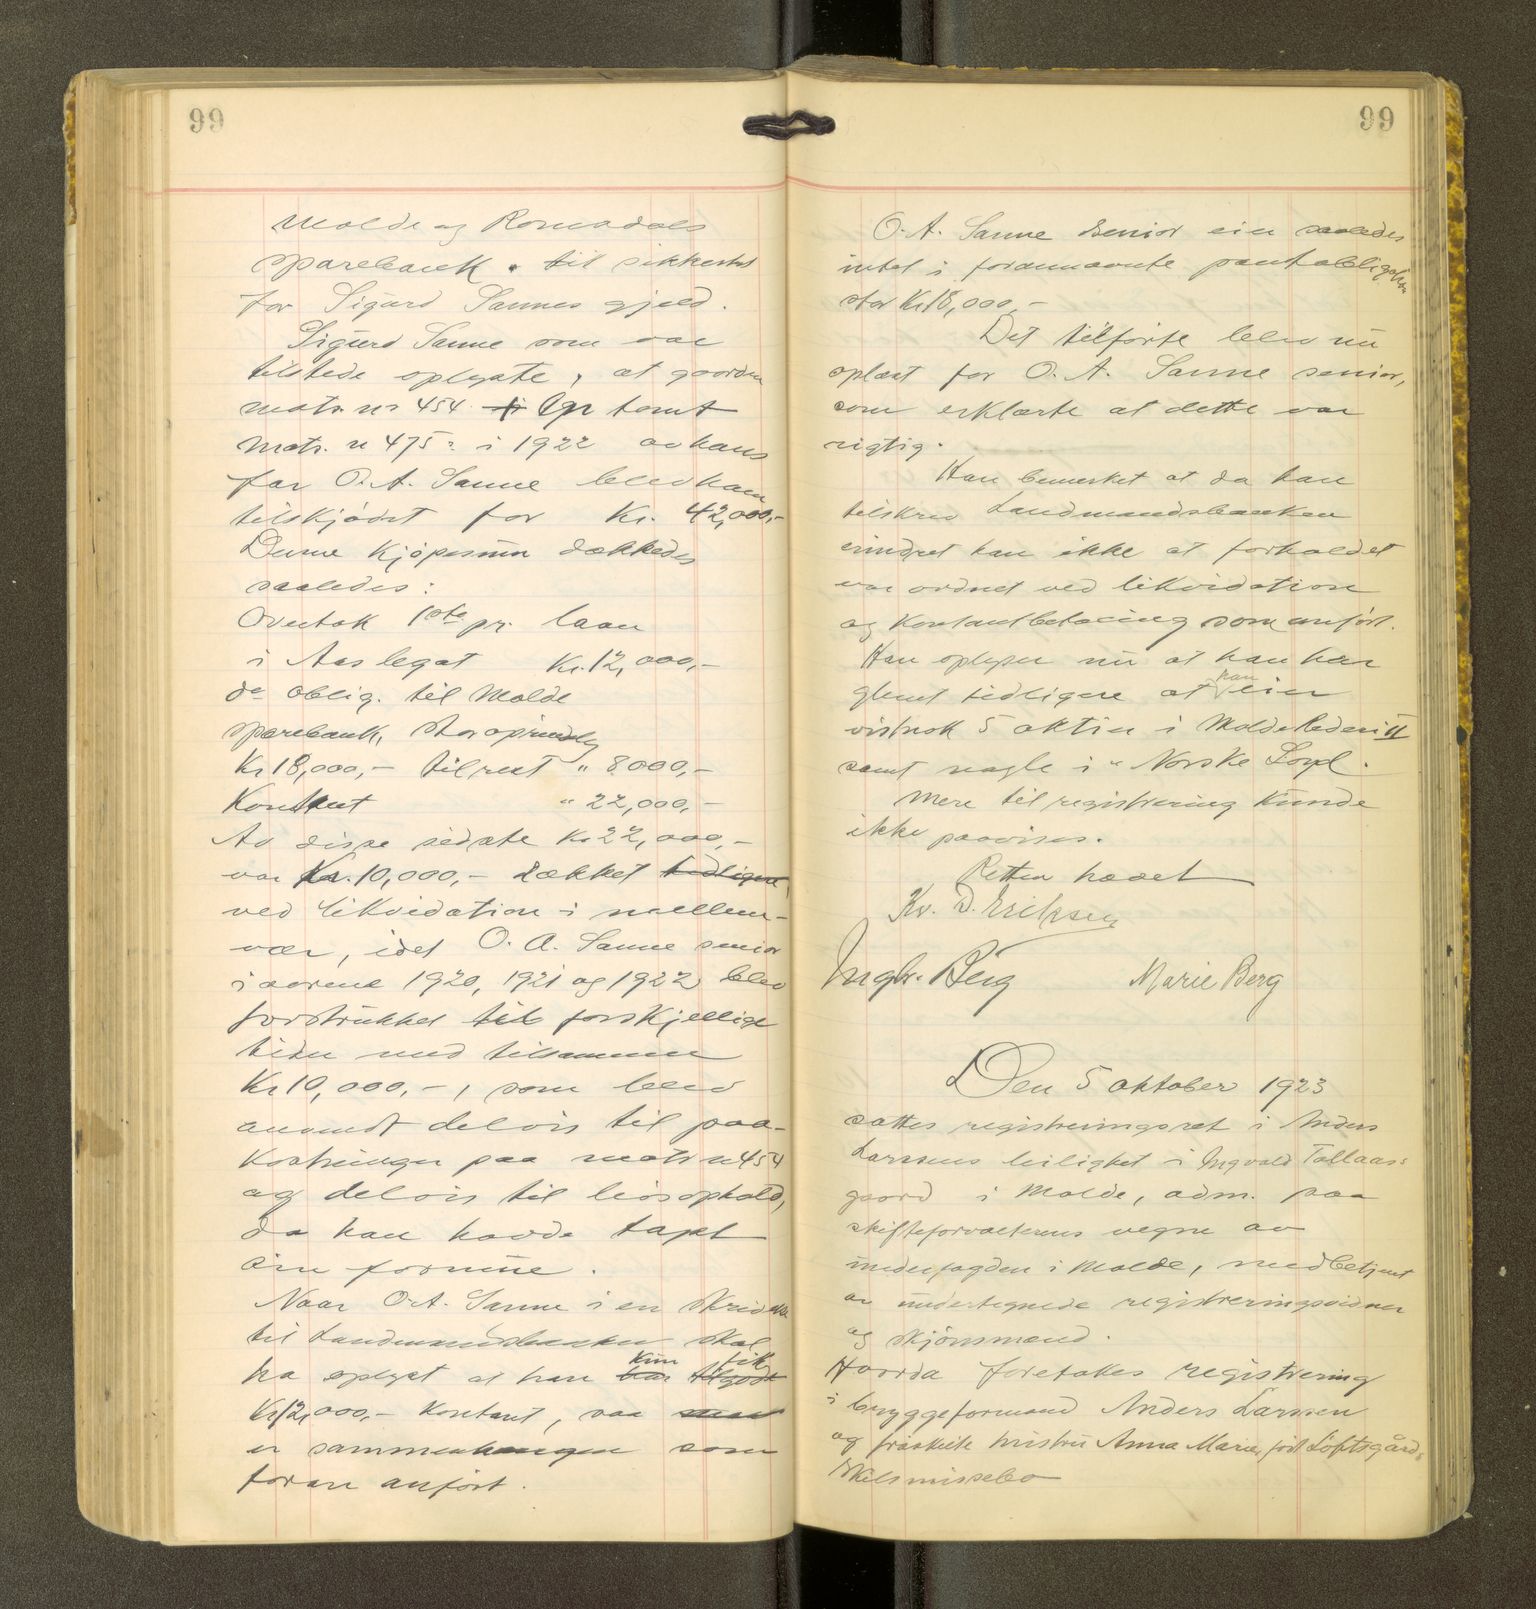 99
Molde og Romsdals
sparebank til sikkerhet
for Sigurd Sannes gjeld.
Sigurd Sanne som var
tilstede oplyste, at gaarden
matr. nr 454 og tomt
matr. nr 475 i 1922 av hans
far O. A. Sanne blev ham
tilskjødet for Kr. 42,000,-
Denne kjøpesum dækkedes
saaledes:
Overtok 1ste pr. laan
i Aas legat Kr. 12,000,-
do oblig. til Molde
sparebank, stor oprindelig
Kr 18,000,- til rest " 8000,-
Kontant " 22,000,-
Av disse sidste Kr 22,000,-
var Kr. 10,000,- dækket tidligere
ved likvidation i mellem-
vær, idet O. A. Sanne senior
i aarene 1920, 1921 og 1922 blev
forstrukket til forskjellige
tider med tilsammen
Kr 10,000,-, som blev
anvendt delvis til paa-
kostninger paa matr nr 454
og delvis til livsophold,
da han havde tapt
sin formue.
Naar O. A. Sanne i en skrivelse
til Landmandsbanken skal
kun fik
ha oplyst at han har tilgode
Kr 12,000,- kontant, saa
er sammenhængen som
foran anført.
99
O. A. Sanne senior eier saaledes
intet i forannævnte pantobligation
stor Kr 18,000,-
Det tilførte blev nu
oplæst for O. A. Sanne senior,
som erklærte at dette var
rigtig.
Han bemerket at da han
tilskrev Landmandsbanken
erindret han ikke at forholdet
var ordnet ved likvidation
og kontantbetaling som anført.
Han oplyser nu at han har
glemt tidligere at han eier
vistnok 5 aktier i Molde Rederi II
samt nogle i "Norske Loyd.
Mere til registrering kunde
ikke paavises.
Retten hævet
Kr. D. Eriksen
Ingbr. Berg Marie Berg
Den 5 oktober 1923
sattes registreringsret i Anders
Larssens leilighet i Ingvald Tollaas-
gaard i Molde, adm. paa
skifteforvalterens vegne av
underfogden i Molde, medbetjent
av undertegnede registreringsvidner
og skjønsmænd.
Hvorda foretokes registrering
i bryggeformand Anders Larssen
og fraskilte hustru Anna Marie, født Löftsgård,
skilsmissebo